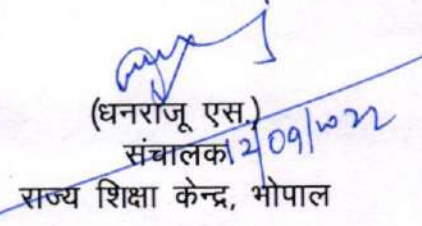 (धनराजू एस.)
संचालक 12/09/2022
राज्य शिक्षा केन्द्र, भोपाल